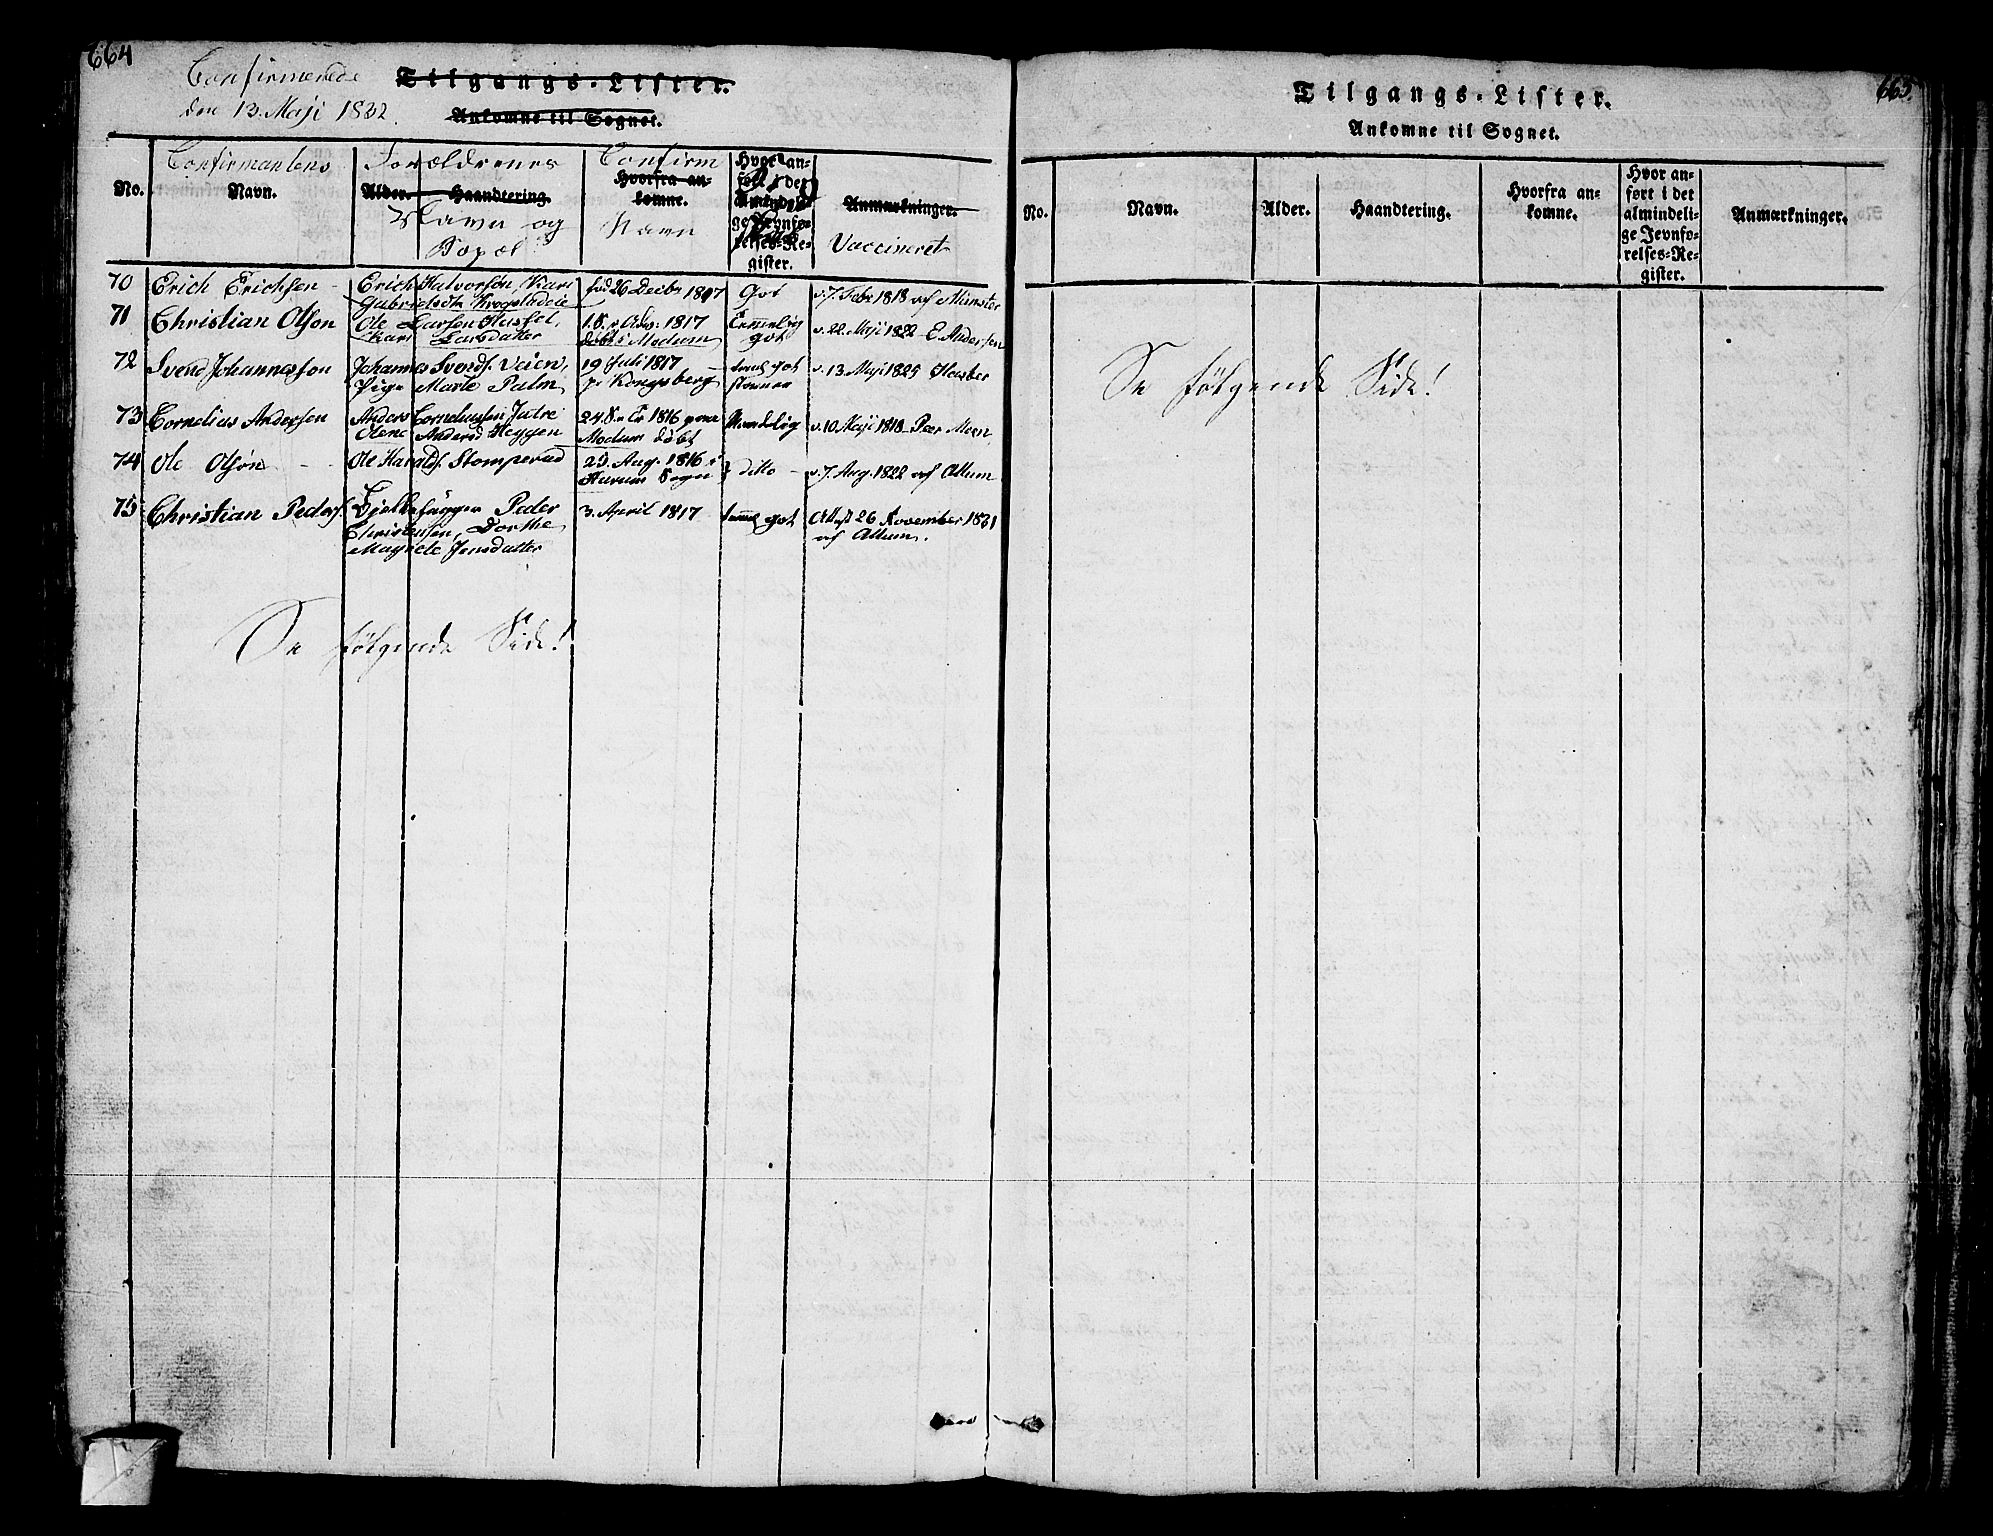 664
Confirmerede
den 13 Maji 1832.
Tilgangs-Lister.
Ankomne til Sognet.
No.
Confirmantens
Navn.
Forældrenes
Alder. Haandtering.
Navn og
Confirm
Hvorfra an-
komne.
Navn
Hvor an-
ført i det
ge Jevnfø-
relses-Re-
gister.
Anmærkninger.
Vaccineret
70 Erich Erichsen Erich Halvorsøn, Kari fød 26 Decbr 1817 Got v. 7 Febr 1818 af Münster
Gabrielsdtr Krogstadeie
71 Christian Olsøn Ole Larsen Kari Larsdatter 1817 døbt i Modum Temmelig got v. 22 Maji 1822 E. Andersen
72 Svend Johannessøn Johannes Svends. Veien, Pige Marte Palm 19 Juli 1817 Kongsberg got v. 13 Maji 1825
73 Cornelius Andersen Anders Corneliussen Anders Heggen 1816 Modum døbt Maadelig v. 10 Maji 1818 Peer Moen
74 Ole Olsøn Ole Haralds. Stomperud 25 Aug. 1816 i Sogn ditto v. 7 Aug. 1822 af Allum
75 Christian Peders. Peder Christensen, Dorthe Magrete Jensdatter 3 April 1817 got Attest 26 November 1831
af Allum.
Se følgende Side!
665.
Tilgangs-Lister.
Ankomne til Sognet.
No.
Navn.
Alder.
Haandtering.
Hvorfra an-
komne.
Hvor an-
ført i det
almindeli-
ge Jevnfø-
relses-Re-
gister.
Anmærkninger.
Se følgende Side!